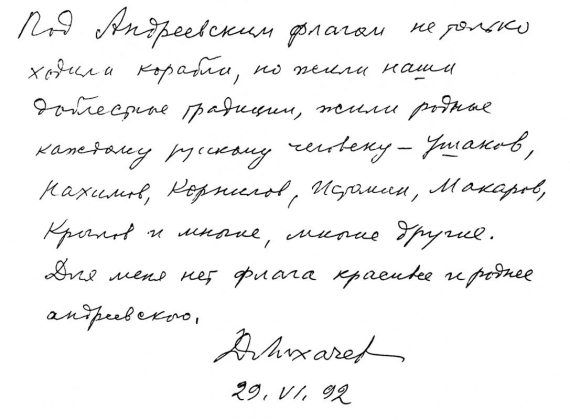 Под Андреевским флагом не только
ходили корабли, но жили наши
доблестные традиции, жили родные
каждому русскому человеку – Ушаков,
Нахимов, Корнилов, Истомин, Макаров,
Крылов и многие, многие другие.
Для меня нет флага красивее и роднее
андреевского.
Д. Лихачев
29. VI. 92